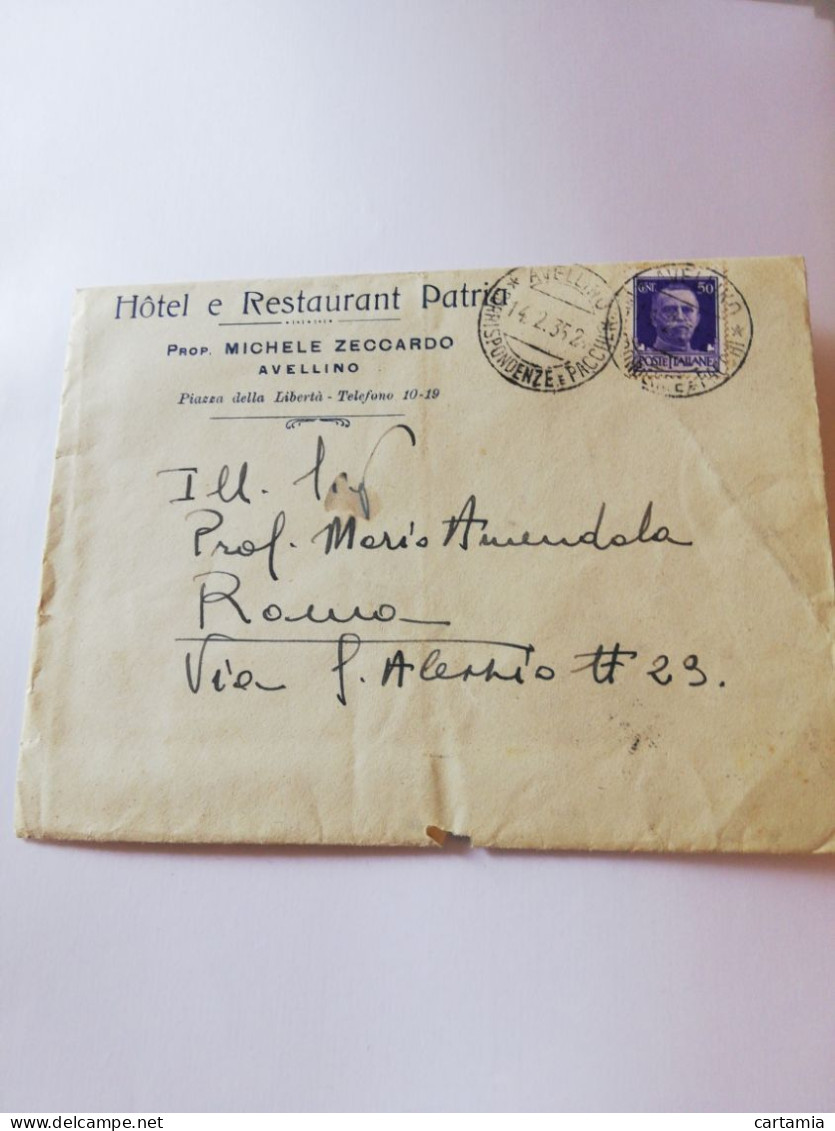 Hôtel e Restaurant Patria
PROP. MICHELE ZECCARDO
AVELLINO
Piazza della Libertà - Telefono 10-19
* AVELLINO
14.2.35.2
CORRISPONDENZE E PACCHI
AVELLINO *
CENT. 50
POSTE ITALIANE
Ill. Sig
Prof. Mario Amendola
Roma
Via S. Alessio # 29.
delcampe.net
cartamia